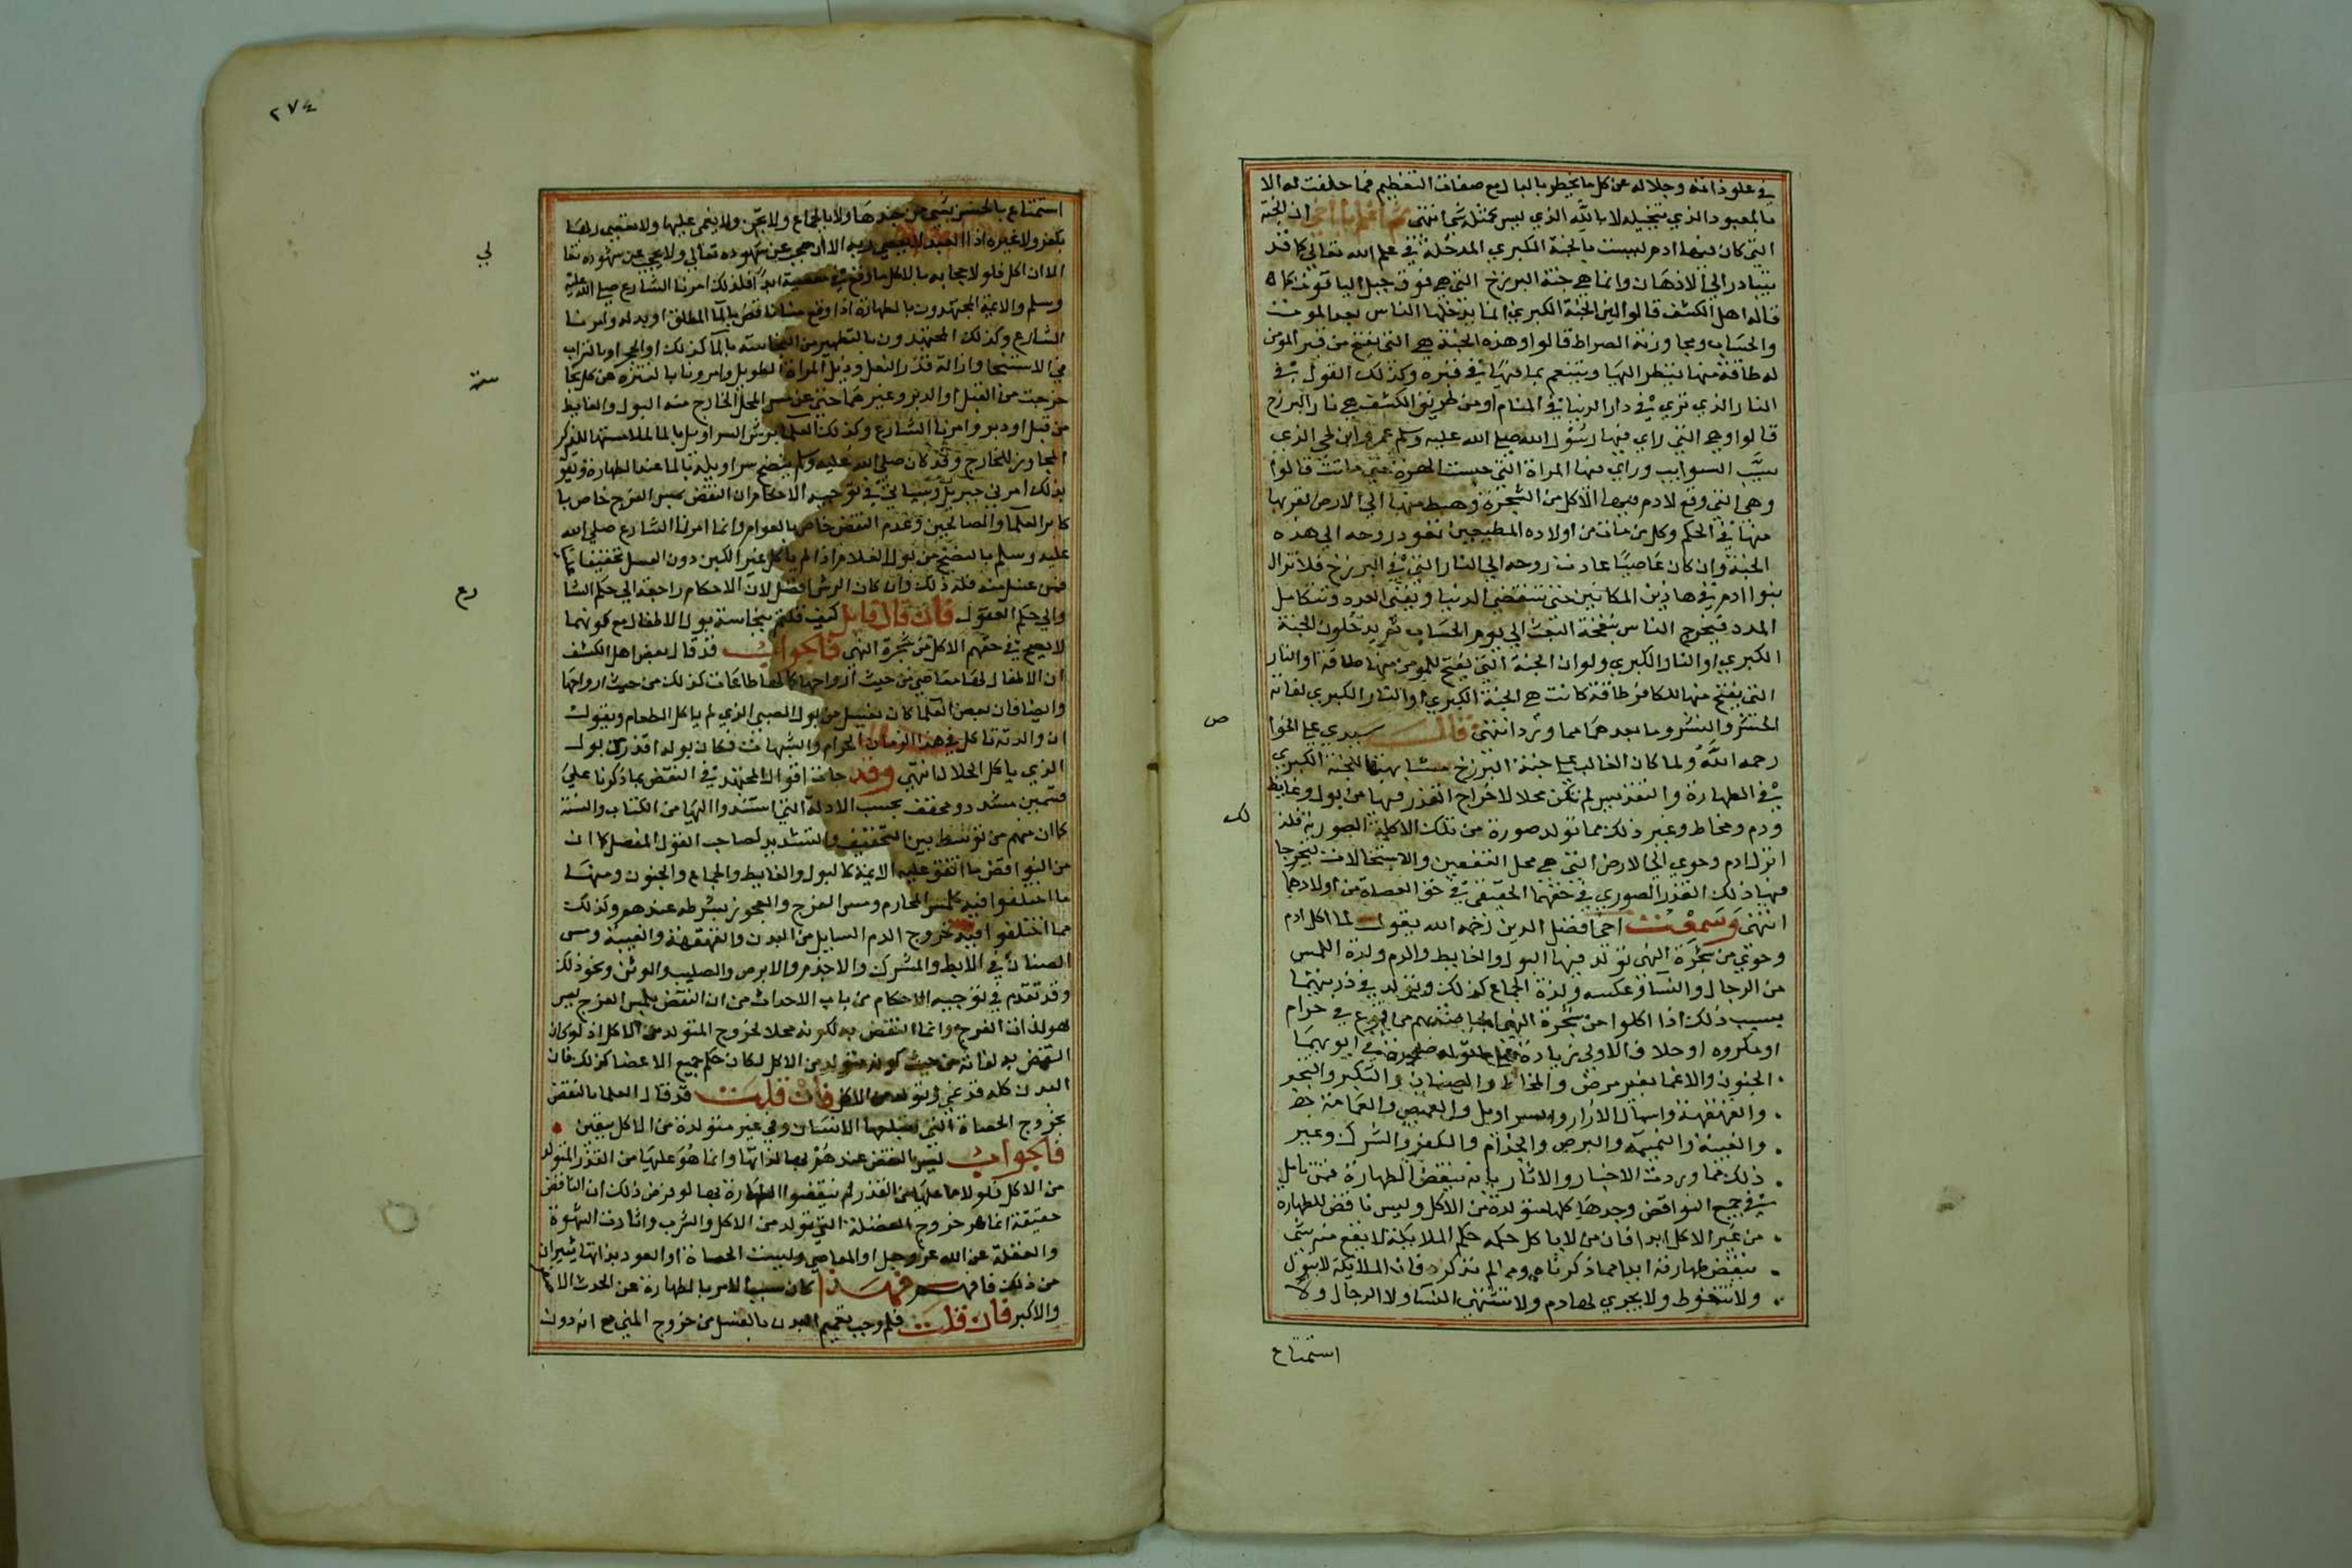 في علو ذاته وجلاله عن كل ما يخطر بالبال مع صفات التعظيم فما حلفت له الا
بالمعبود الذي تتخيله لا بالله الذي ليس كمثله شي انتهى ثم اعلم يا اخي ان الجنة
التي كان فيها ادم ليست بالجنة الكبري المدخلة في علم الله تعالي كما قد
يتبادر الي الاذهان وانما هي جنة البرزخ التي هي فوق جبل الياقوت كما
قاله اهل الكشف قالوا لان الجنة الكبري انما يدخلها الناس بعد الموت
والحساب ومجاوزة الصراط قالوا وهذه الجنة هي التي يفتح من قبر المومن
له طاقة منها لينظر اليها ويتنعم بما فيها في قبره وكذلك القول في
النار الذي تري في دار الدنيا في المنام او من طريق الكشف هي نار البرزخ
قالوا وهي التي راي فيها رسول الله صلى الله عليه وسلم عمرو ابن لحي الذي
سيب السوايب وراي فيها المراة التي حبست الهرة حتي ماتت قالوا
وهي التي وقع لادم فيها الاكل من الشجرة وهبط منها الي الارض لقربها
منها في الحكم وكل من مات من اولاده المطيعين تعود روحه الي هذه
الجنة وان كان عاصيا عادت روحه الي النار التي في البرزخ فلا تزال
بنوا ادم في هاذين المكانين حتي تنقضي الدنيا ويفني العدد وتتكامل
المدد فيخرج الناس بنفخة البعث الي يوم الحساب ثم يدخلون الجنة
الكبري او النار الكبري ولو ان الجنة التي يفتح للمومن منها طاقة او النار
التي يفتح منها للكافر طاقة كانت هي الجنة الكبري او النار الكبري لفاته
الحشر والنشر وما بعدهما مما ورد انتهى قال سيدي علي الخوا
ص
رحمه الله ولما كان الغالب علي جنة البرزخ مشابهتها للجنة الكبري
في الطهارة والتقديس لم تكن محلا لاخراج القذر فيها من بول وغايط
ودم ومخاط وغير ذلك مما تولد صورة من تلك الاكلة الصورية فلذ
لك
انزل ادم وحوي الي الارض التي هي محل التعفين والاستحالات ليخرجا
فيها ذلك القذر الصوري في حقهما الحقيقي في حق العصاة من اولادهما
انتهى وسمعت اخي افضل الدين رحمه الله يقول لما اكل ادم
وحوي من شجرة النهي تولد فيها البول والغايط والدم ولذة اللمس
من الرجال والنسا وعكسه ولذة الجماع كذلك وتولد في ذريتهما
بسبب ذلك اذا اكلوا من شجرة النهي الخاصة بهم من الوقوع في حرام
او مكروه او خلاف الاولي زيادة علي ما تولد في ابويهما
الجنون والاغما بغير مرض والمخاط والصنان والتكبر والتبخر
والقهقهة واسبال الازار والسراويل والقميص والعمامة
والغيبة والنميمة والبرص والجذام والكفر والشرك وغير
ذلك مما وردت الاخبار والاثار بانه ينقض الطهارة فمن تامل
في جميع النواقض وجدها كلها متولدة من الاكل وليس ناقض للطهارة
من غير الاكل ابدا فان من لا ياكل حكمه حكم الملايكة لا يقع منه شي
ينقض طهارته ابدا مما ذكرناه ومما لم نذكره فان الملايكة لا تبول
ولا تتغوط ولا يجري لها دم ولا تشتهي النسا ولا الرجال ولا
استمتاع
٢٧٤
استمتاع بالجنس بشي من بدنها ولا بالجماع ولا تجن ولا يغمي عليها ولا
بكفر ولا غيره اذ العبد لا يعصي ربه الا ان حجب عن شهوده تعالي ولا يحجب عن شهوده تعا
لي
الا ان اكل فلولا حجابه بالاكل ما وقع في معصية ابدا فلذلك امرنا الشارع صلى الله عليه
وسلم والايمة المجتهدون بالطهارة اذا وقع منا ناقض بالما المطلق او بدله وامرنا
الشارع وكذلك المجتهدون بالتطهير من النجاسة بالما كذلك او الحجر او بالتراب
في الاستنجا وازالة قذر النعل وذيل المراة الطويل وامرونا بالتنزه عن كل نجا
سة
خرجت من القبل او الدبر وغيرهما حتي عن مس المحل الخارج منه البول والغايط
من قبل او دبر وامرنا الشارع وكذلك العلما برش السراويل بالما لملامستها للذكر
المجاور للخارج وقد كان صلى الله عليه وسلم ينضح سراويله بالما عند الطهارة ويقو
بذلك امرني جبريل وسياتي في توجيه الاحكام ان النقض بمس الفرج خاص با
كابر العلما والصالحين وعدم النقض خاص بالعوام وانما امرنا الشارع صلى الله
عليه وسلم بالنضح من بول الغلام اذا لم ياكل غير اللبن دون الغسل تخفيفا
فمن غسل منه فله ذلك وان كان الرش افضل لان الاحكام راجعة الي حكم الشا
رع
والي حكم العقول فان قال قايل كيف قلتم بنجاسة بول الاطفال مع كونهما
لا يصح في حقهم الاكل من شجرة النهي فالجواب قد قال بعض اهل الكشف
ان الاطفال لها معاصي من حيث ارواحها كما لها طاعات كذلك من حيث ارواحها
وايضا فان بعض العلما كان يغسل من بول الصبي الذي لم ياكل الطعام ويقول
ان والدته تاكل في هذا الزمان الحرام والشبهات فكان بوله اقذر من بول
الذي ياكل الحلال انتهى وقد جات اقوال المجتهد في النقض بما ذكرنا علي
قسمين مشدد ومخفف بحسب الادلة التي استندوا اليها من الكتاب والسنة
كما ان منهم من توسط بين التخفيف والتشديد لصاحب القول المفصل كما ان
من النواقض ما اتفق عليه الايمة كالبول والغايط والجماع والجنون ومنها
ما اختلفوا فيه كلمس المحارم ومس الفرج والعجوز بشرطه عندهم وكذلك
مما اختلفوا فيه خروج الدم السايل من البدن والقهقهة والغيبة ومس
الصنان في الابط والمشرك والاجذم والابرص والصليب والوثن ونحو ذلك
وقد تقدم في توجيه الاحكام من باب الاحداث من ان النقض بلمس الفرج ليس
هو لذات الفرج وانما النقض به لكونه محلا لخروج المتولد من الاكل اذ لو كان
النقض به لذاته من حيث كونه متولد من الاكل لكان حكم جميع الاعضا كذلك فان
البدن كله قد نمي وتولد من الاكل فان قلت قد قال العلما بالنقض
بخروج الحصاة التي يبتلعها الانسان وهي غير متولدة من الاكل بيقين
فالجواب ليس النقض عندهم بها لذاتها وانما هو عليها من القذر المتولد
من الاكل فلولا ما عليها من القذر لم ينقضوا الطهارة بها لو فرض ذلك ان الناقض
حقيقة انما هو خروج الفضلة التي تولد من الاكل والشرب واثارت الشهوة
والغفلة عن الله عز وجل او المعاصي وليست الحصاة او العود بذاتها يثيران
من ذلك فافهم فهذا كان سبب الامر بالطهارة عن الحدث الا
والاكبر فان قلت فلم وجب تعميم البدن بالغسل من خروج المني مع انه دون